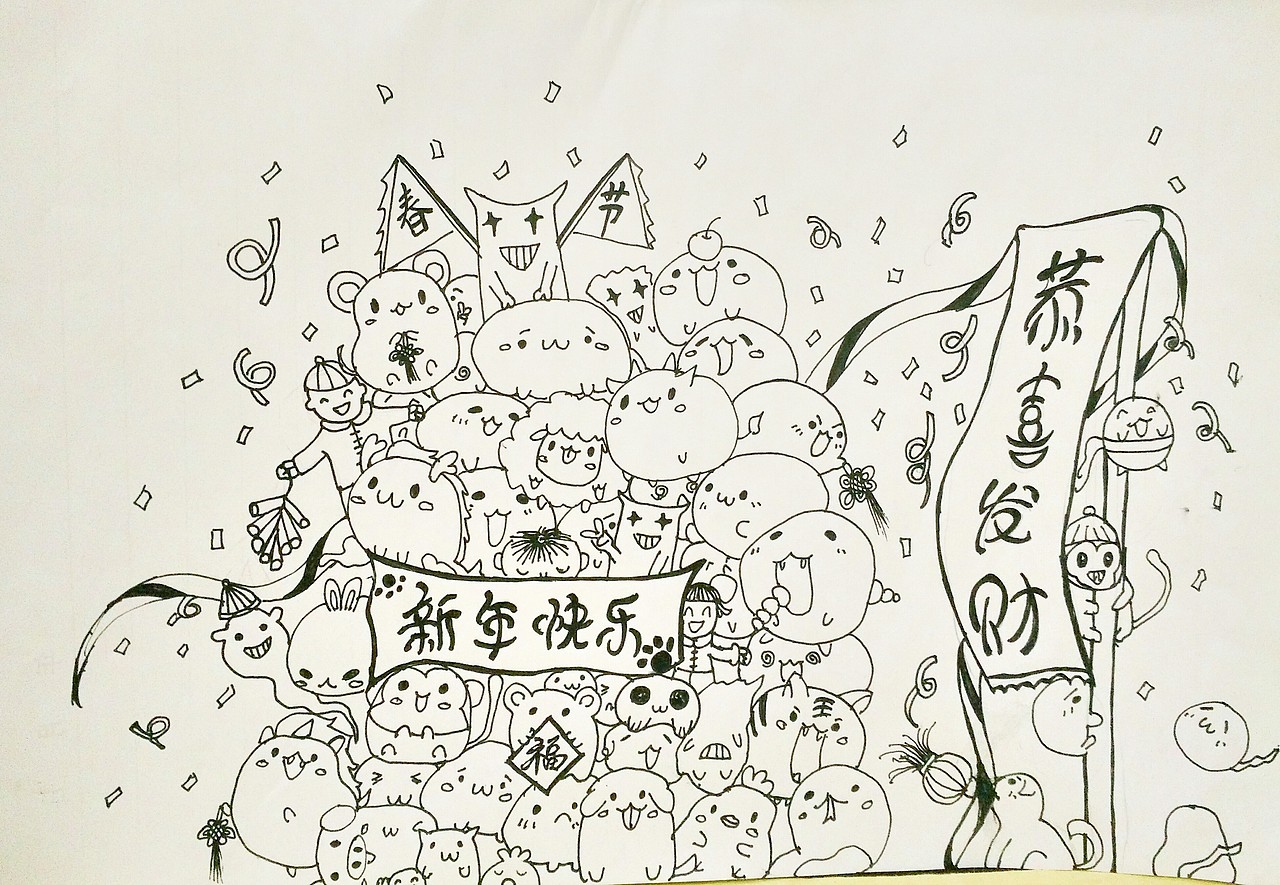 春节
恭喜发财
新年快乐
福